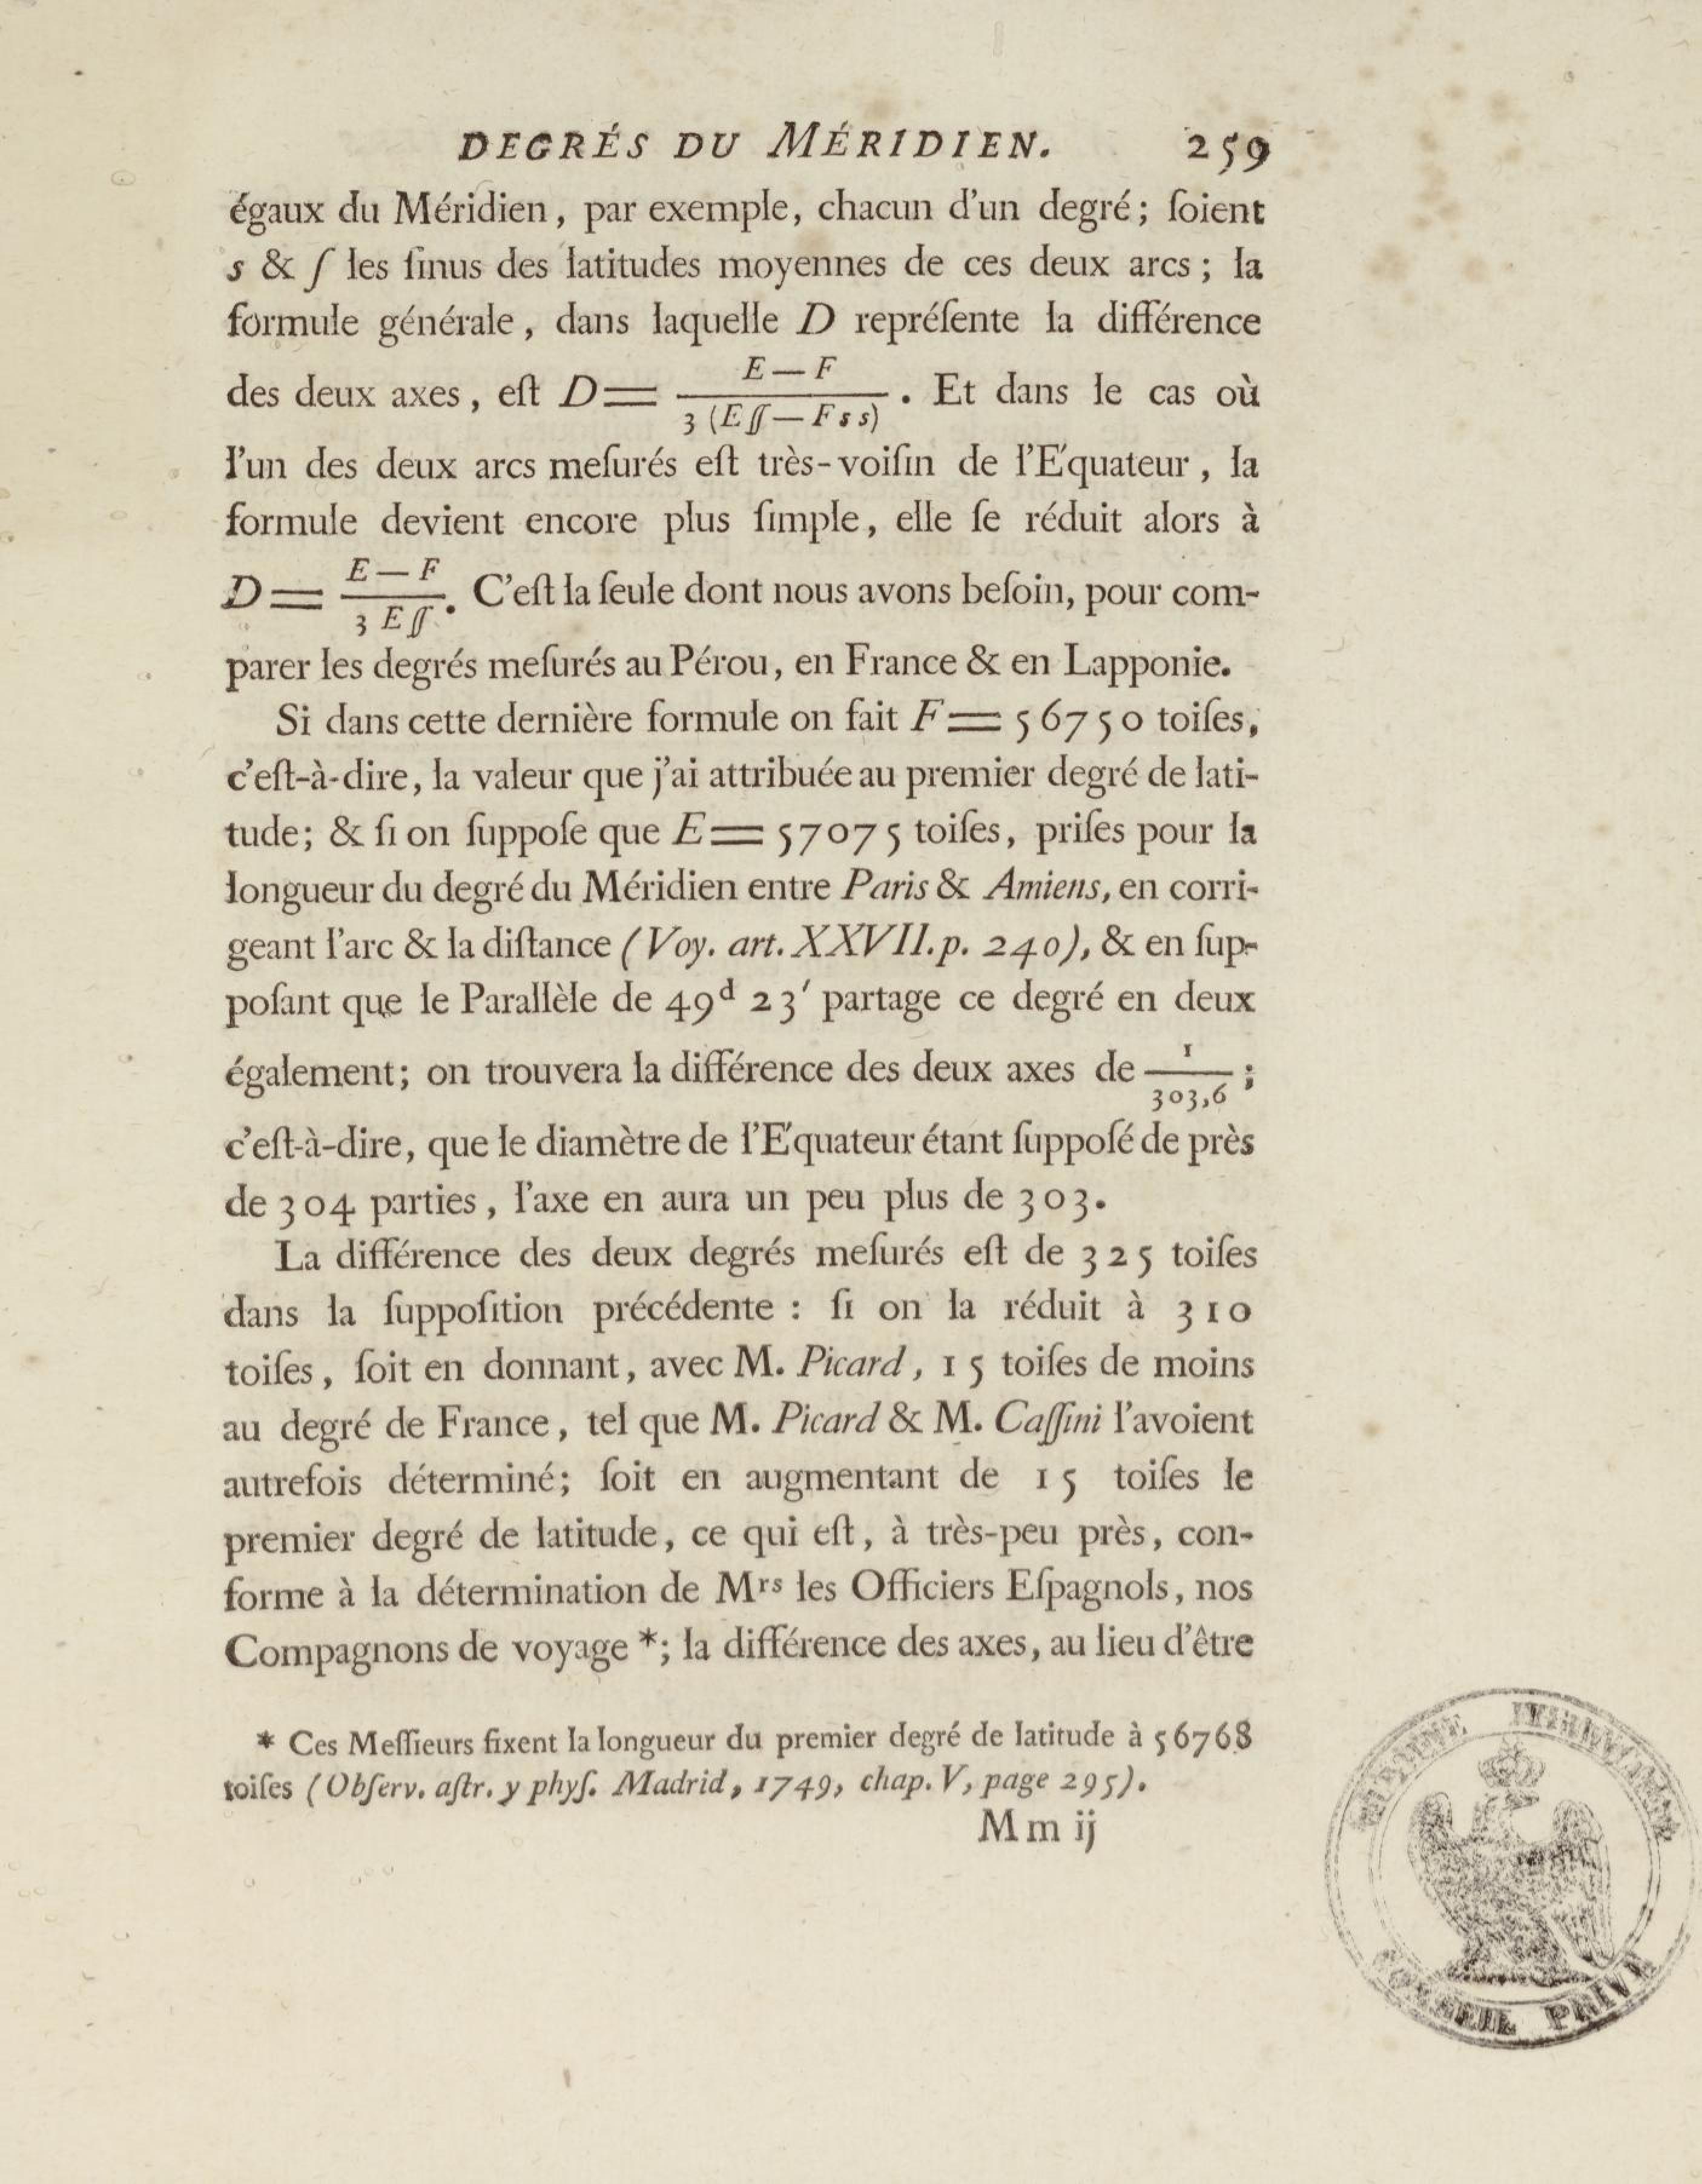 DEGRÉS DU MÉRIDIEN. 259
égaux du Méridien, par exemple, chacun d'un degré; ſoient
s & ſ les ſinus des latitudes moyennes de ces deux arcs; la
formule générale, dans laquelle D repréſente la différence
des deux axes, eſt D = (E — F) / (3 (Eſſ — Fss)). Et dans le cas où
l'un des deux arcs meſurés eſt très-voiſin de l'Équateur, la
formule devient encore plus ſimple, elle ſe réduit alors à
D = (E — F) / (3 Eſſ). C'eſt la ſeule dont nous avons beſoin, pour com-
parer les degrés meſurés au Pérou, en France & en Lapponie.
Si dans cette dernière formule on fait F = 56750 toiſes,
c'eſt-à-dire, la valeur que j'ai attribuée au premier degré de lati-
tude; & ſi on ſuppoſe que E = 57075 toiſes, priſes pour la
longueur du degré du Méridien entre Paris & Amiens, en corri-
geant l'arc & la diſtance (Voy. art. XXVII. p. 240), & en ſup-
poſant que le Parallèle de 49ᵈ 23′ partage ce degré en deux
également; on trouvera la différence des deux axes de 1/303,6;
c'eſt-à-dire, que le diamètre de l'Équateur étant ſuppoſé de près
de 304 parties, l'axe en aura un peu plus de 303.
La différence des deux degrés meſurés eſt de 325 toiſes
dans la ſuppoſition précédente : ſi on la réduit à 310
toiſes, ſoit en donnant, avec M. Picard, 15 toiſes de moins
au degré de France, tel que M. Picard & M. Caſſini l'avoient
autrefois déterminé; ſoit en augmentant de 15 toiſes le
premier degré de latitude, ce qui eſt, à très-peu près, con-
forme à la détermination de Mʳˢ les Officiers Eſpagnols, nos
Compagnons de voyage *; la différence des axes, au lieu d'être
* Ces Meſſieurs fixent la longueur du premier degré de latitude à 56768
toiſes (Obſerv. aſtr. y phyſ. Madrid, 1749, chap. V, page 295).
Mm ij
CONSEIL PRIVÉ